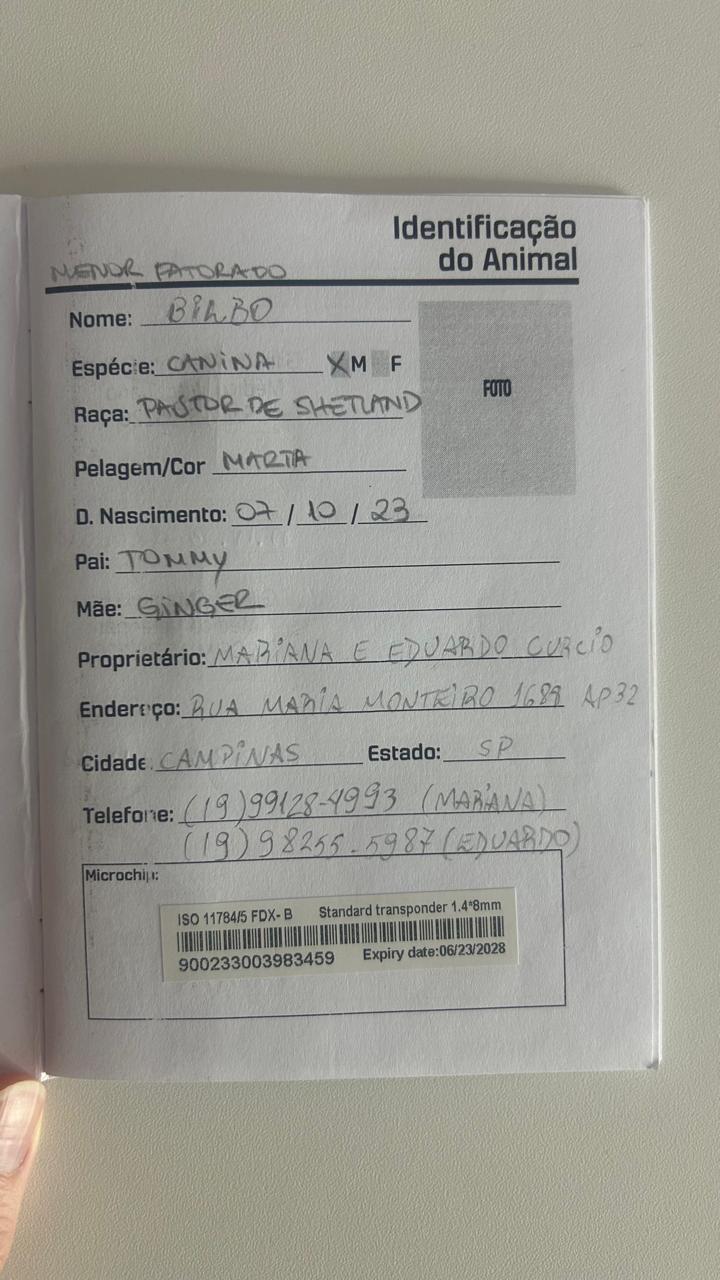 Identificação
do Animal
MENOR FATORADO
Nome: BILBO
Espécie: CANINA X M F
Raça: PASTOR DE SHETLAND
FOTO
Pelagem/Cor MARTA
D. Nascimento: 07 / 10 / 23
Pai: TOMMY
Mãe: GINGER
Proprietário: MARIANA E EDUARDO CURCIO
Endereço: RUA MARIA MONTEIRO 1689 AP32
Cidade: CAMPINAS Estado: SP
Telefone: (19)99128-4993 (MARIANA)
(19)98255-5987 (EDUARDO)
Microchip:
ISO 11784/5 FDX-B Standard transponder 1.4*8mm
900233003983459 Expiry date:06/23/2028